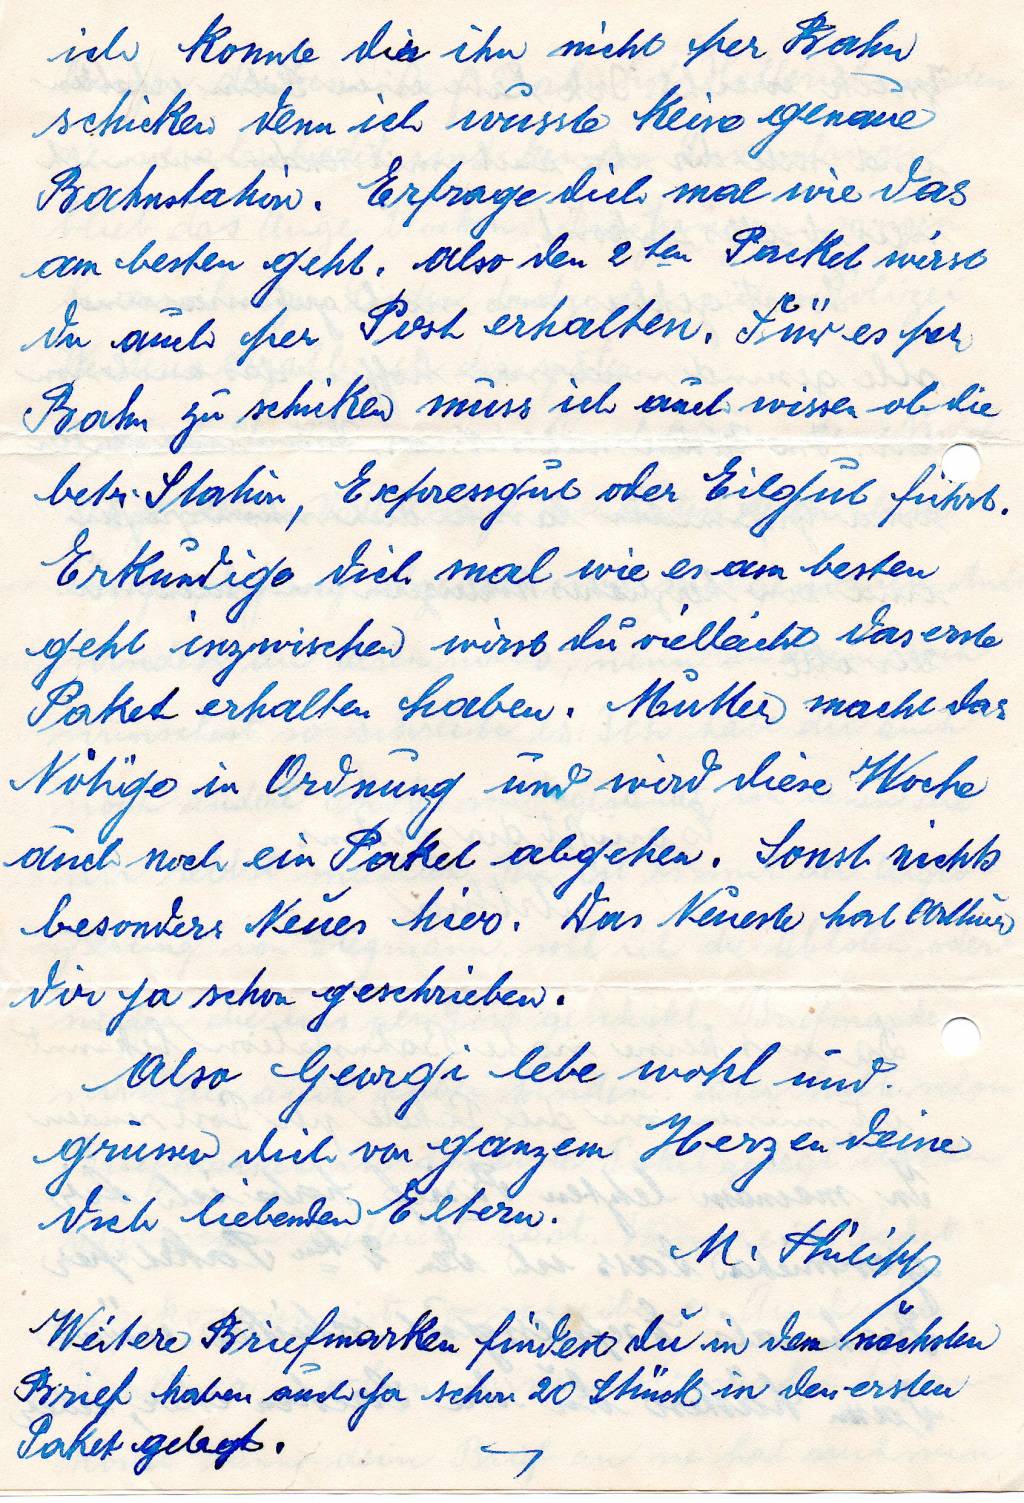 ich konnte dir ihn nicht per Bahn
schicken denn ich wusste keine genaue
Bahnstation. Erfrage dich mal wie das
am besten geht. Also den 2ten Packet wirst
du auch per Post erhalten. Für es per
Bahn zu schicken muss ich auch wissen ob die
betr. Station, Expressgut oder Eilgut führt.
Erkundige dich mal wie es am besten
geht inzwischen wirst du vielleicht das erste
Paket erhalten haben. Mutter macht das
Nötige in Ordnung und wird diese Woche
auch noch ein Paket abgehen. Sonst nichts
besonders Neues hier. Das Neueste hat Arthur
dir ja schon geschrieben.
Also Georgi lebe wohl und
grüssen dich von ganzem Herzen deine
dich liebenden Eltern.
M. Philipp
Weitere Briefmarken findest du in dem nächsten
Brief haben auch ja schon 20 Stück in den ersten
Paket gelegt.